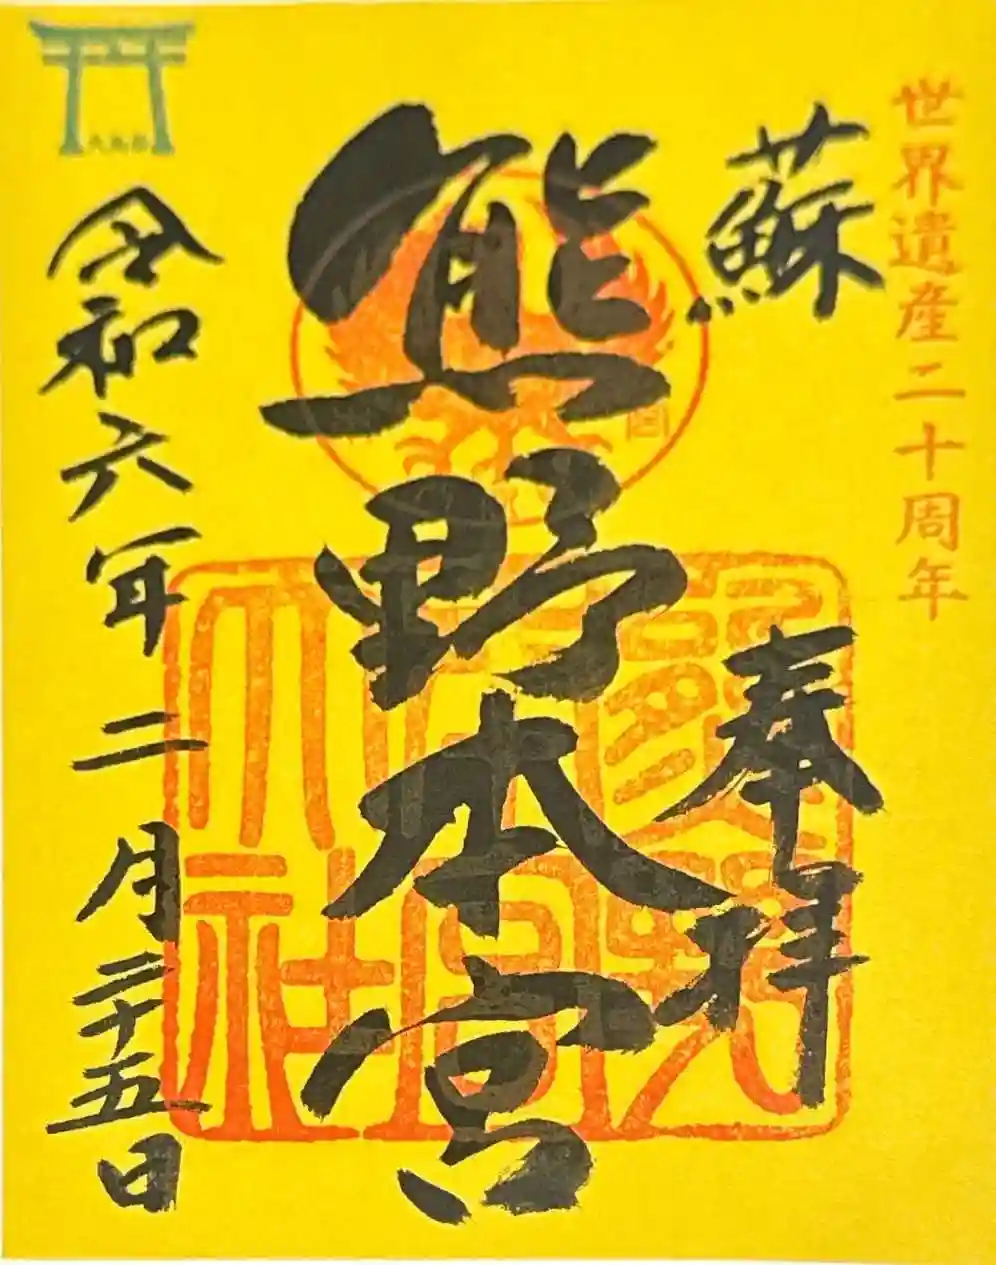 世界遺産二十周年
蘇
奉拝
熊野本宮
熊野本宮大社
令和六年二月二十五日